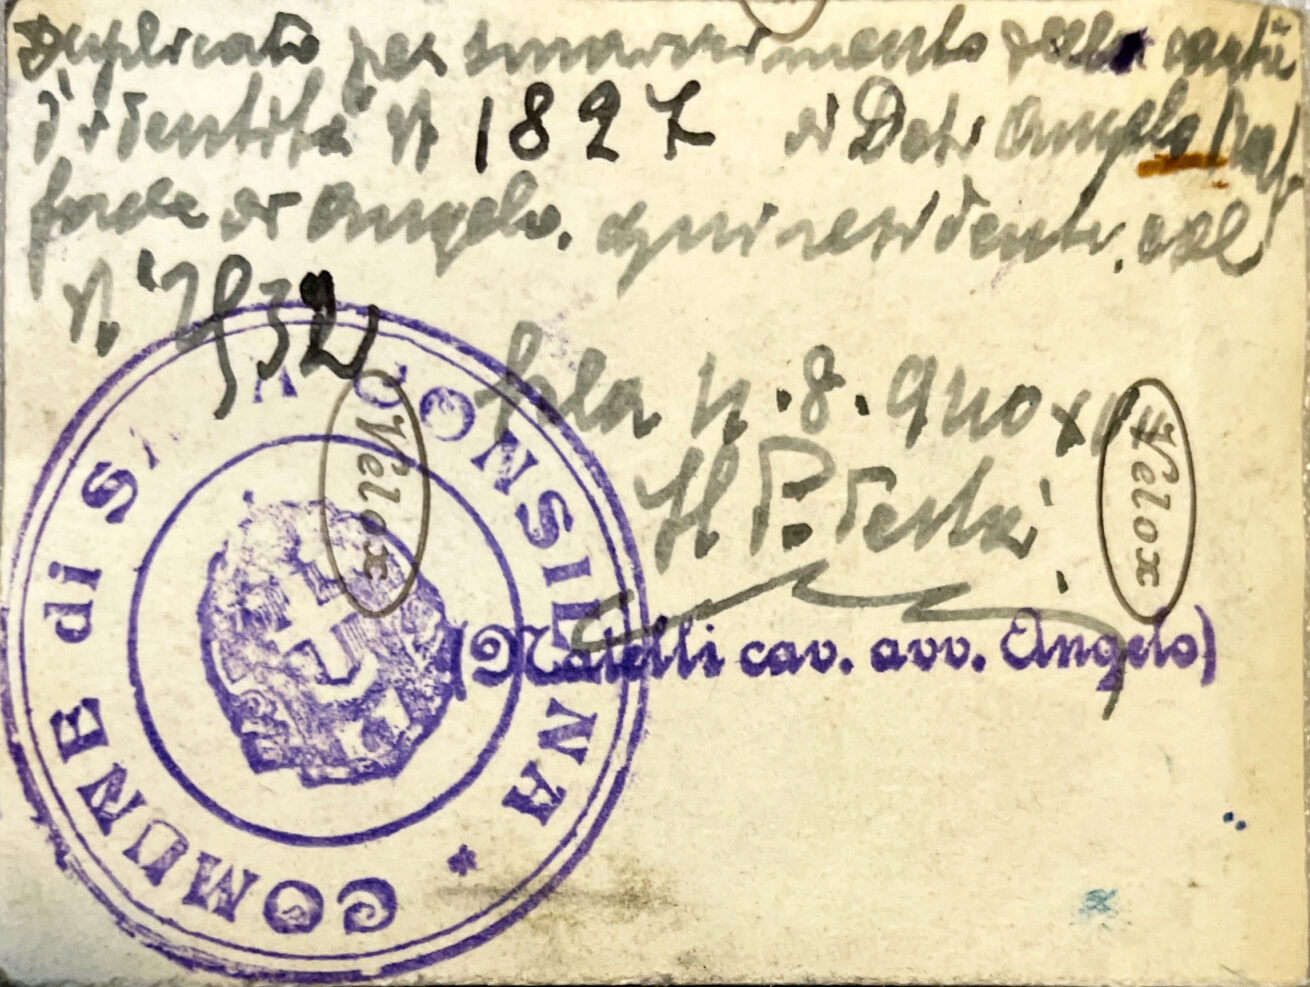 Duplicato per smarrimento della carta
d'identità N 1827 di Dati Angelo Raf
faele di Angelo. qui residente, col
N.
Sala N. 8. 
Il Podestà
(Natelli cav. avv. Angelo)
COMUNE di SALA CONSILINA *
Velox
Velox